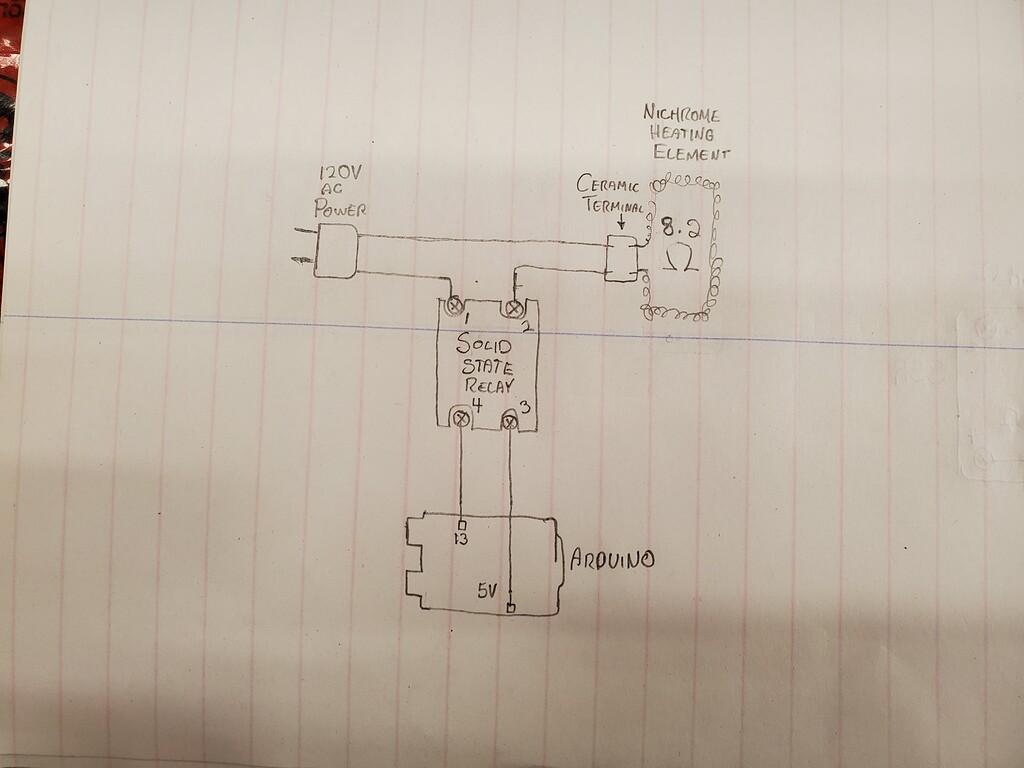 NICHROME
HEATING
ELEMENT
120V
AC
POWER
CERAMIC
TERMINAL
8.2
Ω
1
2
SOLID
STATE
RELAY
4
3
13
ARDUINO
5V